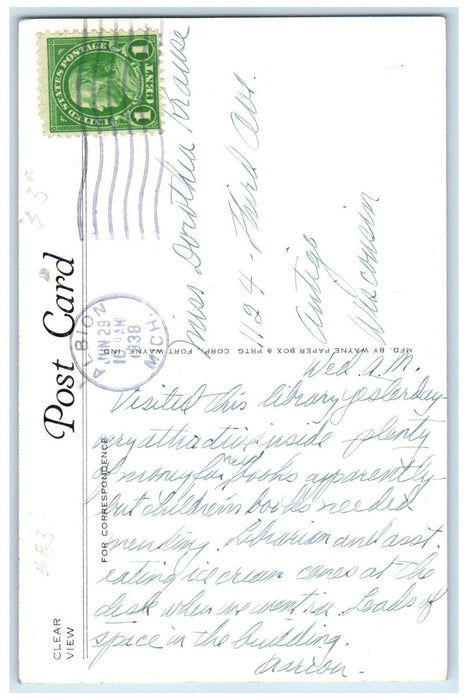 UNITED STATES POSTAGE
1 CENT 1
ALBION
JUN 29
10 AM
1938
MICH.
Post Card
CLEAR
VIEW
FOR CORRESPONDENCE
MFD. BY WAYNE PAPER BOX & PRTG. CORP., FORT WAYNE, IND.
Miss Dorothea Krause
1124 - Third Ave.
Antigo
Wisconsin
Wed. A.M.
Visited this library yesterday
very attractive inside plenty
of money for new books apparently
but children's books needed
mending. Librarian and asst.
eating ice cream cones at the
desk when we went in. Loads of
space in the building.